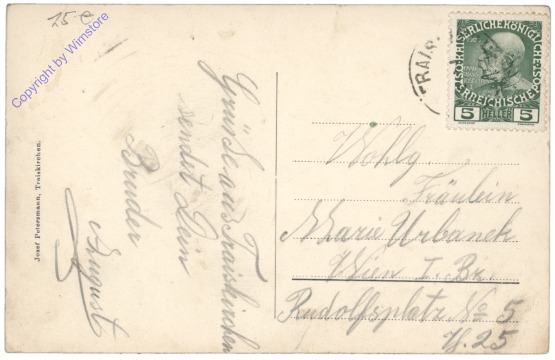 15 €
Copyright by Wimstore
Grüße aus Traiskirchen
sendet Dein
Bruder
August
Josef Petersmann, Traiskirchen.
TRAIS
KAISERLICHE KÖNIGLICHE
ÖSTERREICHISCHE POST
5 HELLER 5
Wohlg.
Fräulein
Marie Urbanek
Wien I. Bz.
Rudolfsplatz No 5
H. 25